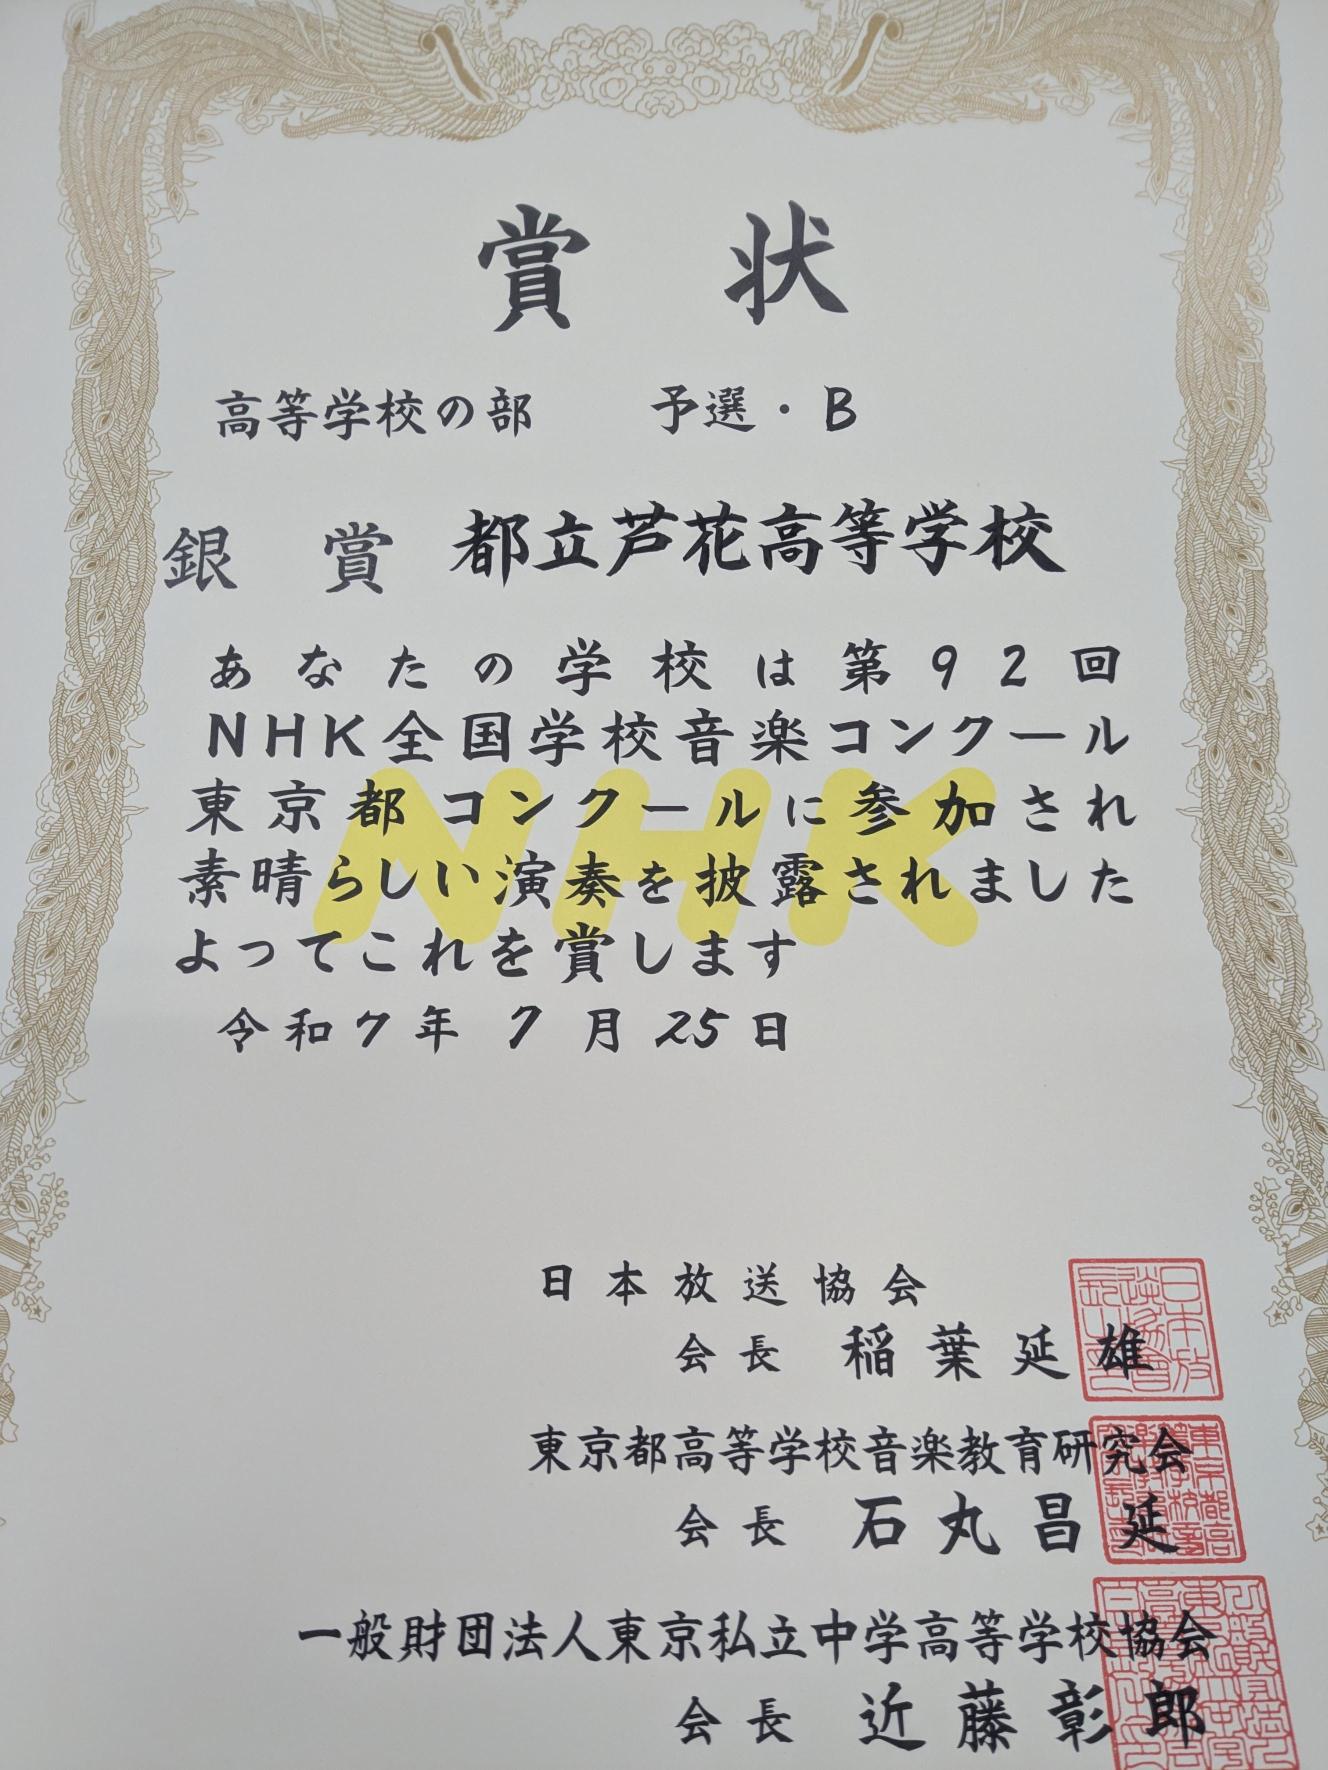 賞状
高等学校の部 予選・B
銀賞 都立芦花高等学校
あなたの学校は第92回
NHK全国学校音楽コンクール
東京都コンクールに参加され
素晴らしい演奏を披露されました
よってこれを賞します
令和7年7月25日
NHK
日本放送協会
会長 稲葉延雄
東京都高等学校音楽教育研究会
会長 石丸昌延
一般財団法人東京私立中学高等学校協会
会長 近藤彰郎